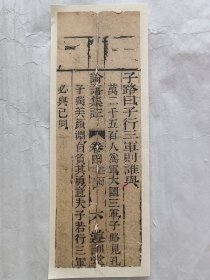 子路曰子行三軍則誰與
萬二千五百人爲軍大國三軍子路見孔
論語集註 卷四 六
子獨美顏淵自負其勇意夫子若行三軍
必與己同